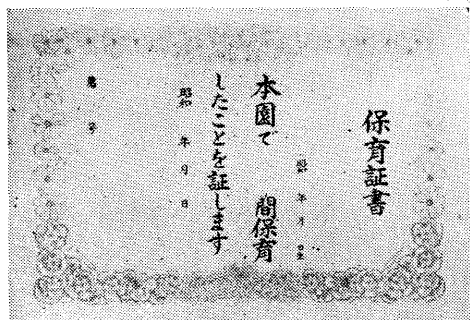 保育証書
昭和 年 月 日生
本園で 間保育
したことを証します
昭和 年 月 日
第 号